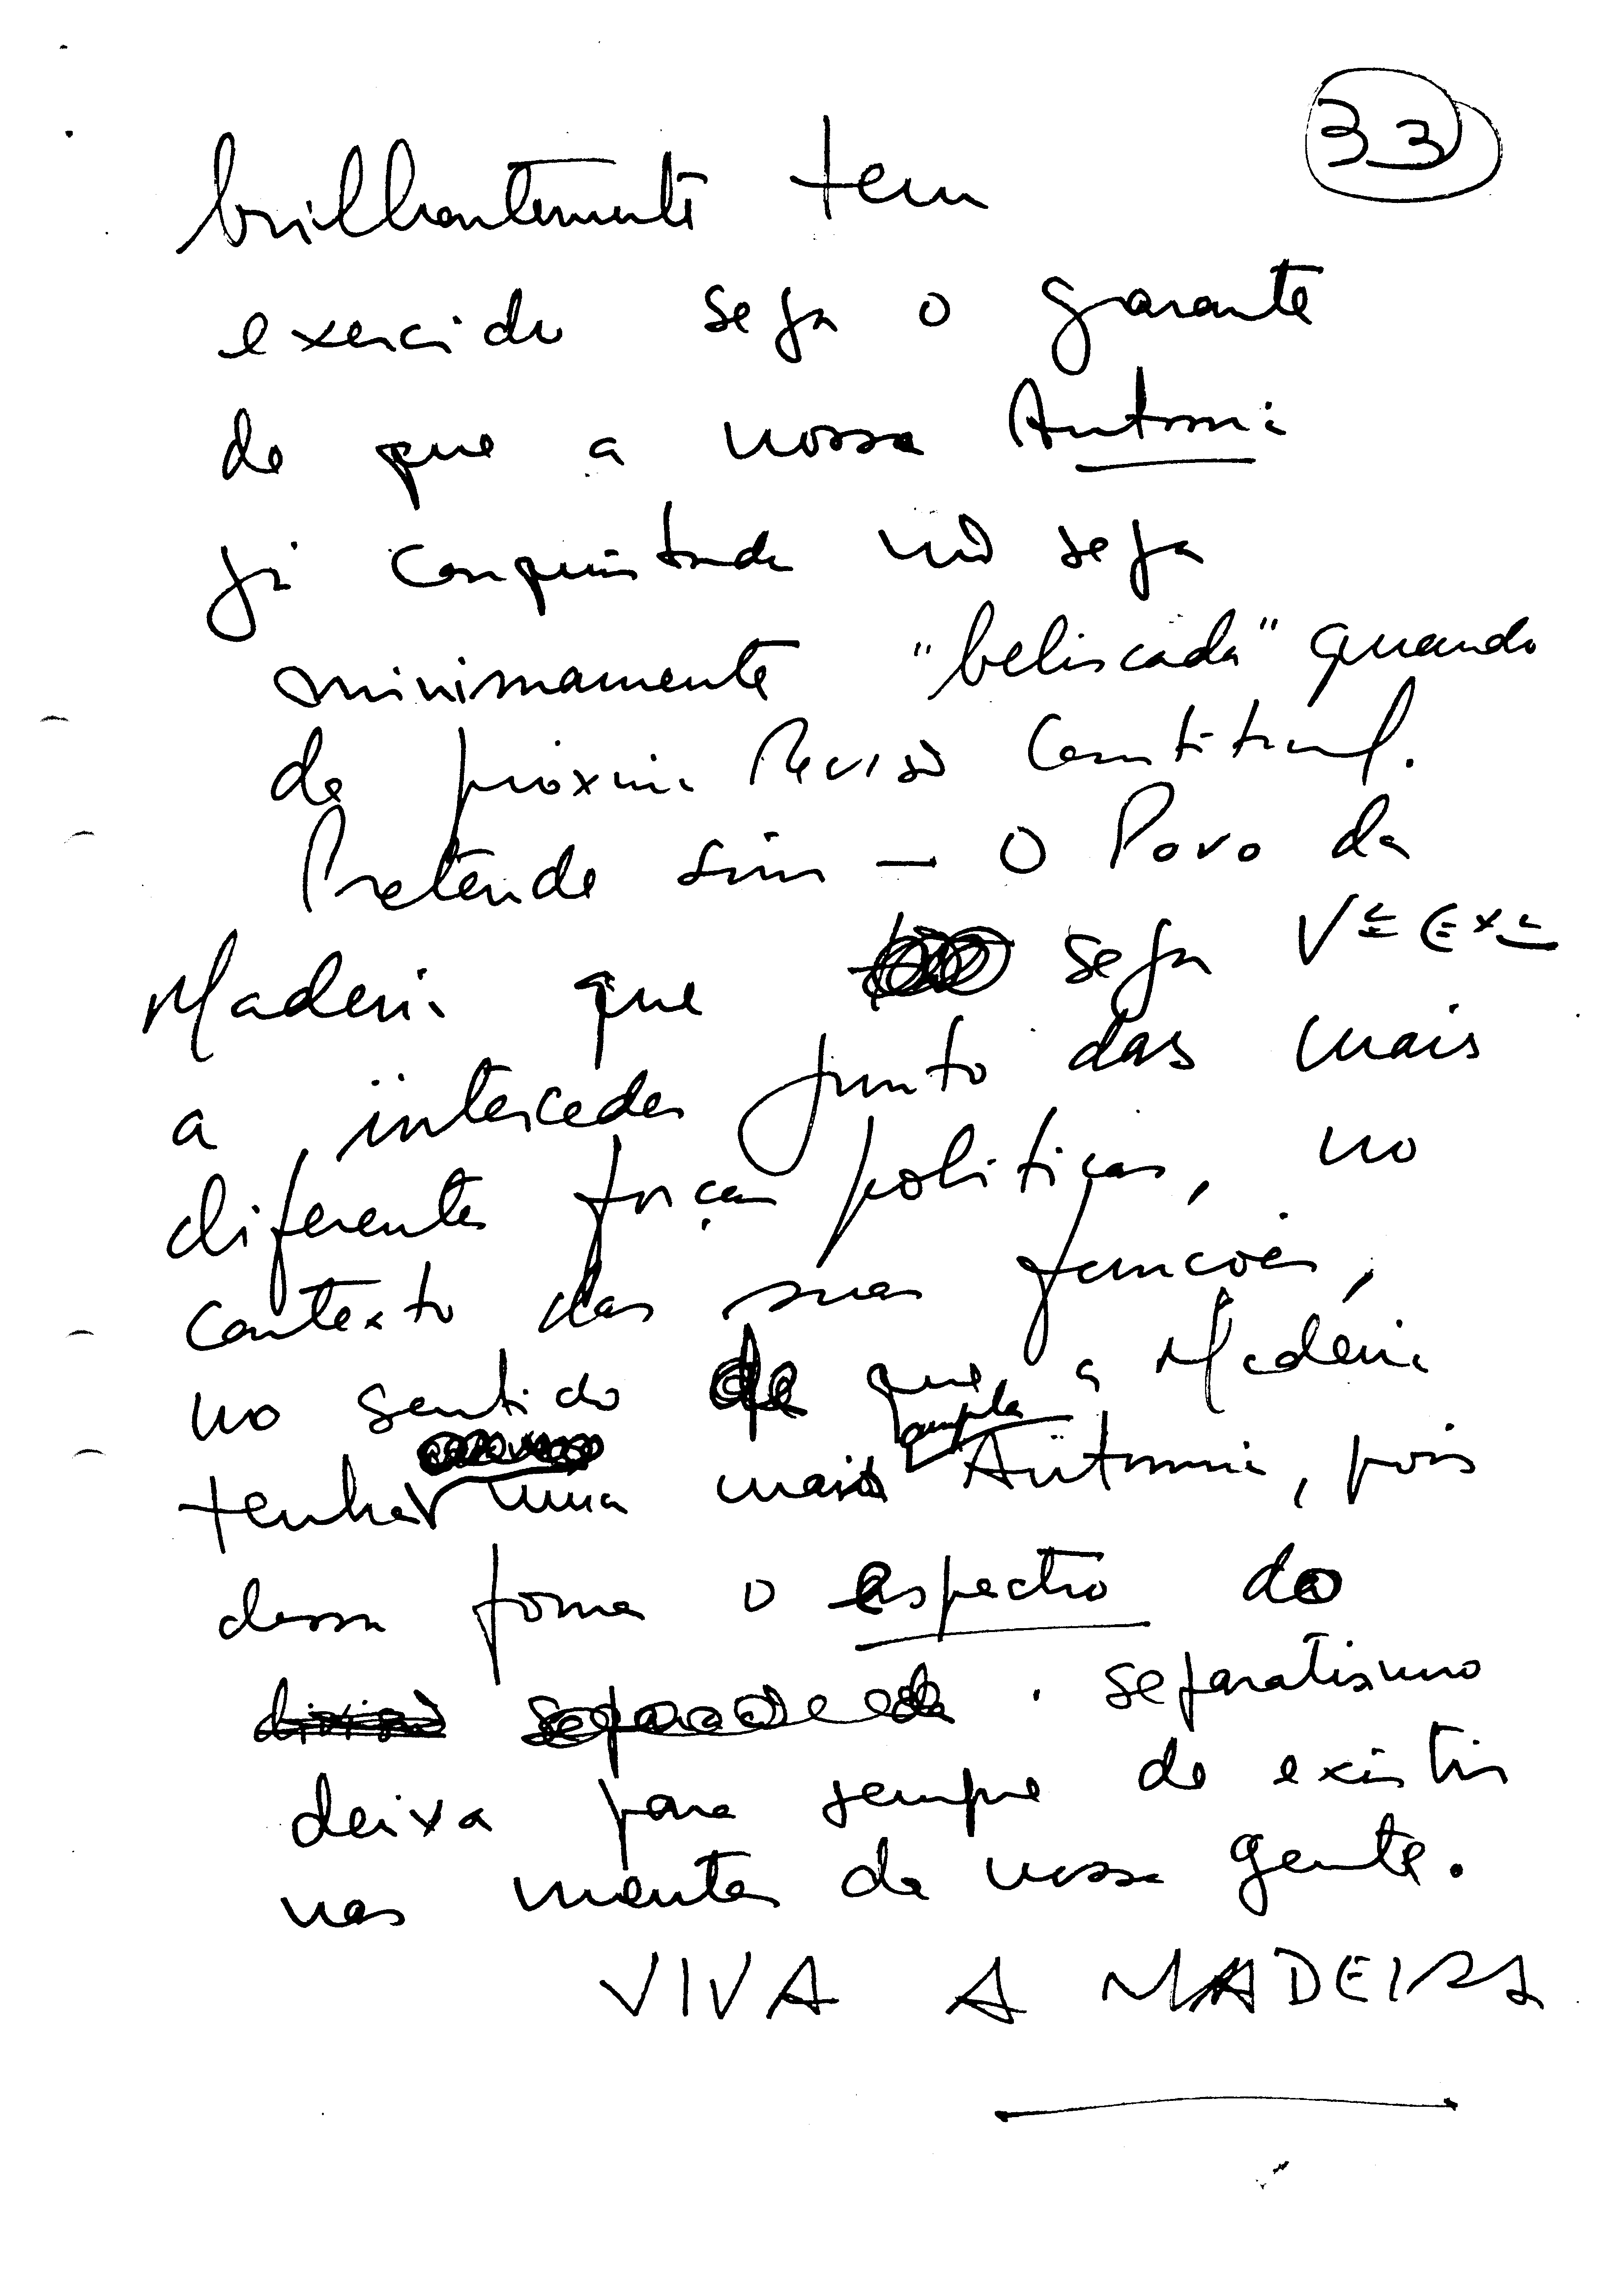 33
brilhantemente tem
exercido seja o garante
de que a nossa Autonomia
já conquistada não seja
minimamente "beliscada" quando
da próxima Revisão Constitucional.
Pretende sim — o Povo da
Madeira que seja Vª Exª
a interceder junto das mais
diferentes forças políticas, no
contexto das suas funções,
no sentido de que a Madeira
tenha uma mais ampla Autonomia, pois
dessa forma o espectro do
divisão separatismo
deixa para sempre de existir
nas mentes da nossa gente.
VIVA A MADEIRA